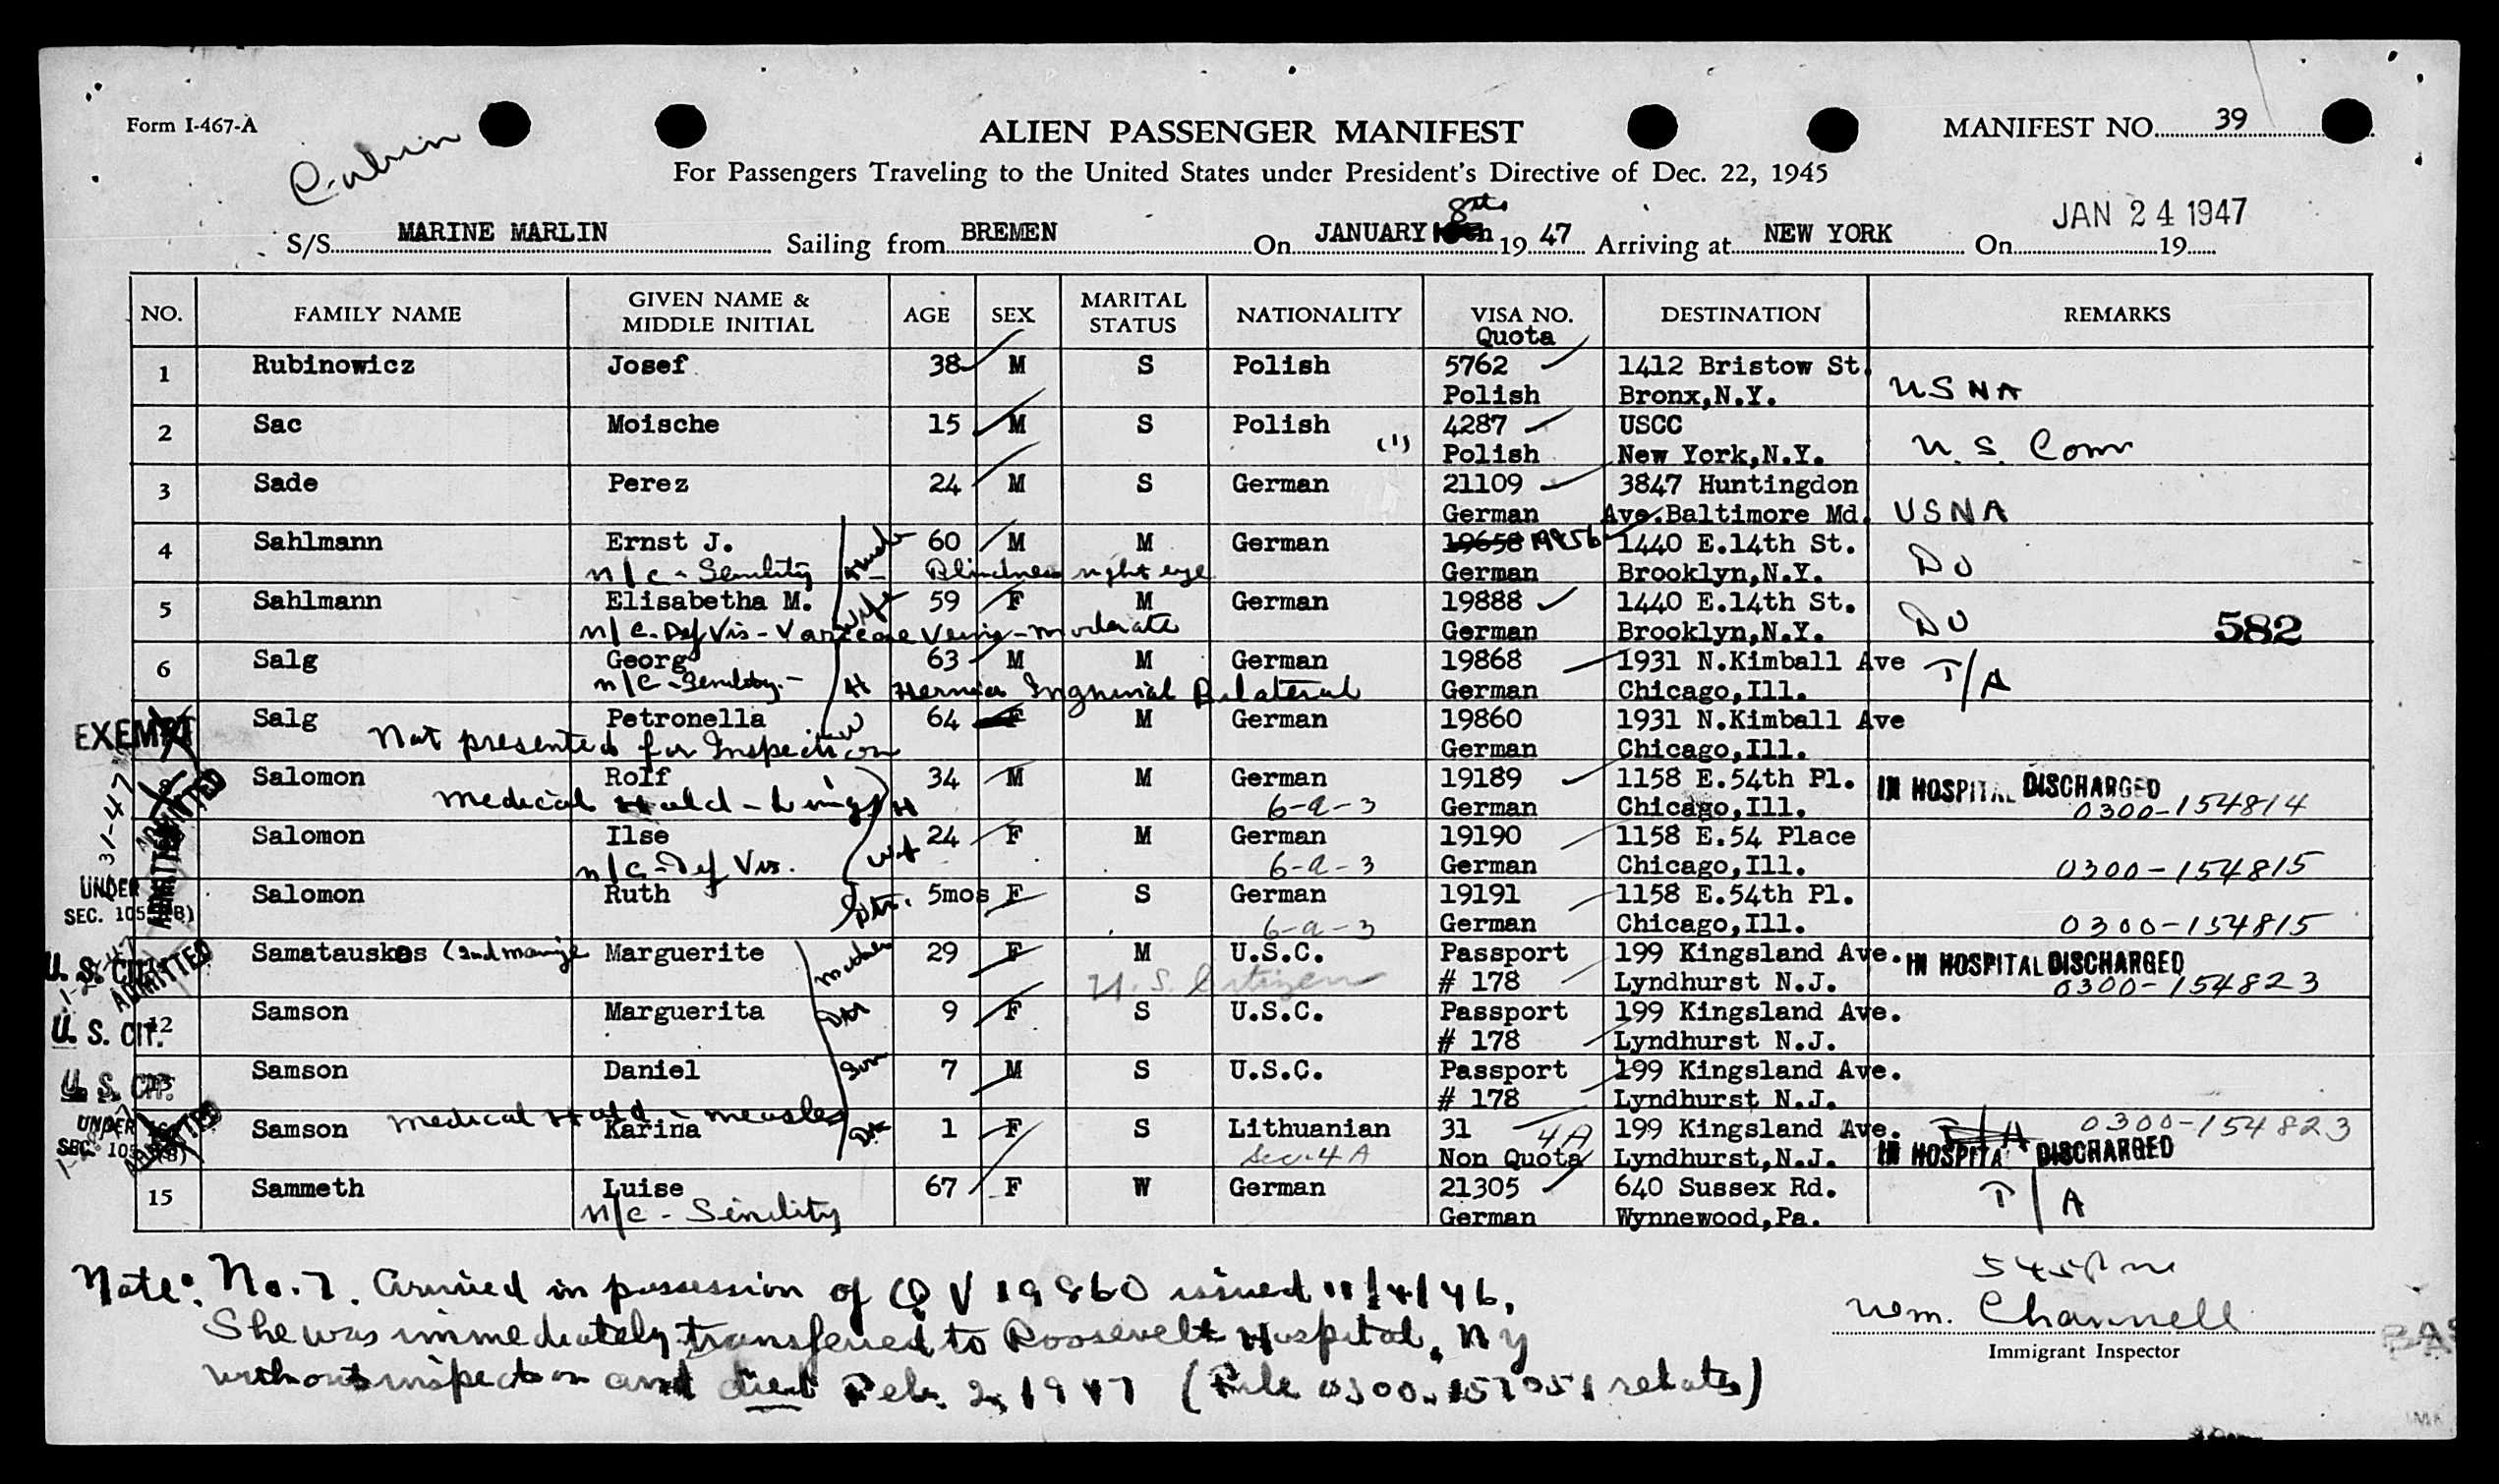 Form I-467-A
Cabin
ALIEN PASSENGER MANIFEST
MANIFEST NO. 39
For Passengers Traveling to the United States under President's Directive of Dec. 22, 1945
S/S MARINE MARLIN Sailing from BREMEN On JANUARY 8th 19 47 Arriving at NEW YORK On JAN 24 1947 19
NO. FAMILY NAME GIVEN NAME & MIDDLE INITIAL AGE SEX MARITAL STATUS NATIONALITY VISA NO. DESTINATION REMARKS
Quota
1 Rubinowicz Josef 38 M S Polish 5762 1412 Bristow St.
Polish Bronx,N.Y. USNA
2 Sac Moische 15 M S Polish 4287 USCC
(1) Polish New York,N.Y. U.S. Com
3 Sade Perez 24 M S German 21109 3847 Huntingdon
German Ave.Baltimore Md. USNA
4 Sahlmann Ernst J. Husb 60 M M German 19658 19856 1440 E.14th St. Do
n/c - Senility - Blindness right eye German Brooklyn,N.Y.
5 Sahlmann Elisabetha M. Wife 59 F M German 19888 1440 E.14th St. Do
n/c. Def Vis - Varicose Veins - moderate German Brooklyn,N.Y. 582
6 Salg Georg 63 M M German 19868 1931 N.Kimball Ave T/A
n/c - Senility - H Hernia Inguinal Bilateral German Chicago,Ill.
EXEMPT Salg Petronella W 64 F M German 19860 1931 N.Kimball Ave
Not presented for Inspection German Chicago,Ill.
Salomon Rolf 34 M M German 19189 1158 E.54th Pl. IN HOSPITAL DISCHARGED
ADMITTED Medical Hold - Lungs H 6-a-3 German Chicago,Ill. 0300-154814
Salomon Ilse 24 F M German 19190 1158 E.54 Place
n/c - Def Vis. Wf 6-a-3 German Chicago,Ill. 0300-154815
UNDER Salomon Ruth Dtr. 5mos F S German 19191 1158 E.54th Pl.
SEC. 105 (B) 6-a-3 German Chicago,Ill. 0300-154815
U. S. CIT. Samatauskas (2nd marriage Marguerite Mother 29 F M U.S.C. Passport 199 Kingsland Ave. IN HOSPITAL DISCHARGED
ADMITTED U. S. Citizen # 178 Lyndhurst N.J. 0300-154823
U. S. CIT. 12 Samson Marguerita Dtr 9 F S U.S.C. Passport 199 Kingsland Ave.
# 178 Lyndhurst N.J.
U. S. CIT. 13 Samson Daniel Son 7 M S U.S.C. Passport 199 Kingsland Ave.
# 178 Lyndhurst N.J.
Medical Hold - measles
UNDER Samson Karina 1 F S Lithuanian 31 4A 199 Kingsland Ave. T/A 0300-154823
SEC. 105 (B) ADMITTED Sec. 4A Non Quota Lyndhurst,N.J. IN HOSPITAL DISCHARGED
15 Sammeth Luise 67 F W German 21305 640 Sussex Rd. T/A
n/c - Senility German Wynnewood,Pa.
Note: No. 7. Arrived in possession of QV 19860 issued 11/4/46,
She was immediately transferred to Roosevelt Hospital, NY
without inspection and died Feb. 2, 1947 (File 0300-157051 relates)
545 Pm
Wm. Channell
Immigrant Inspector